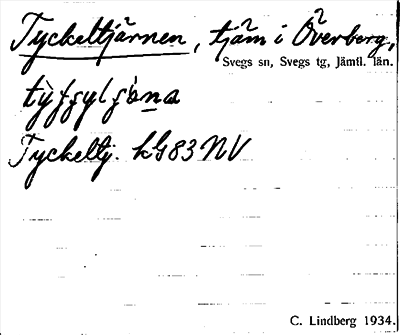 Tyckeltjärnen, tjäm i Överberg,
Svegs sn, Svegs tg, Jämtl. län.
Tyckeltj. kG83NV
C. Lindberg 1934.